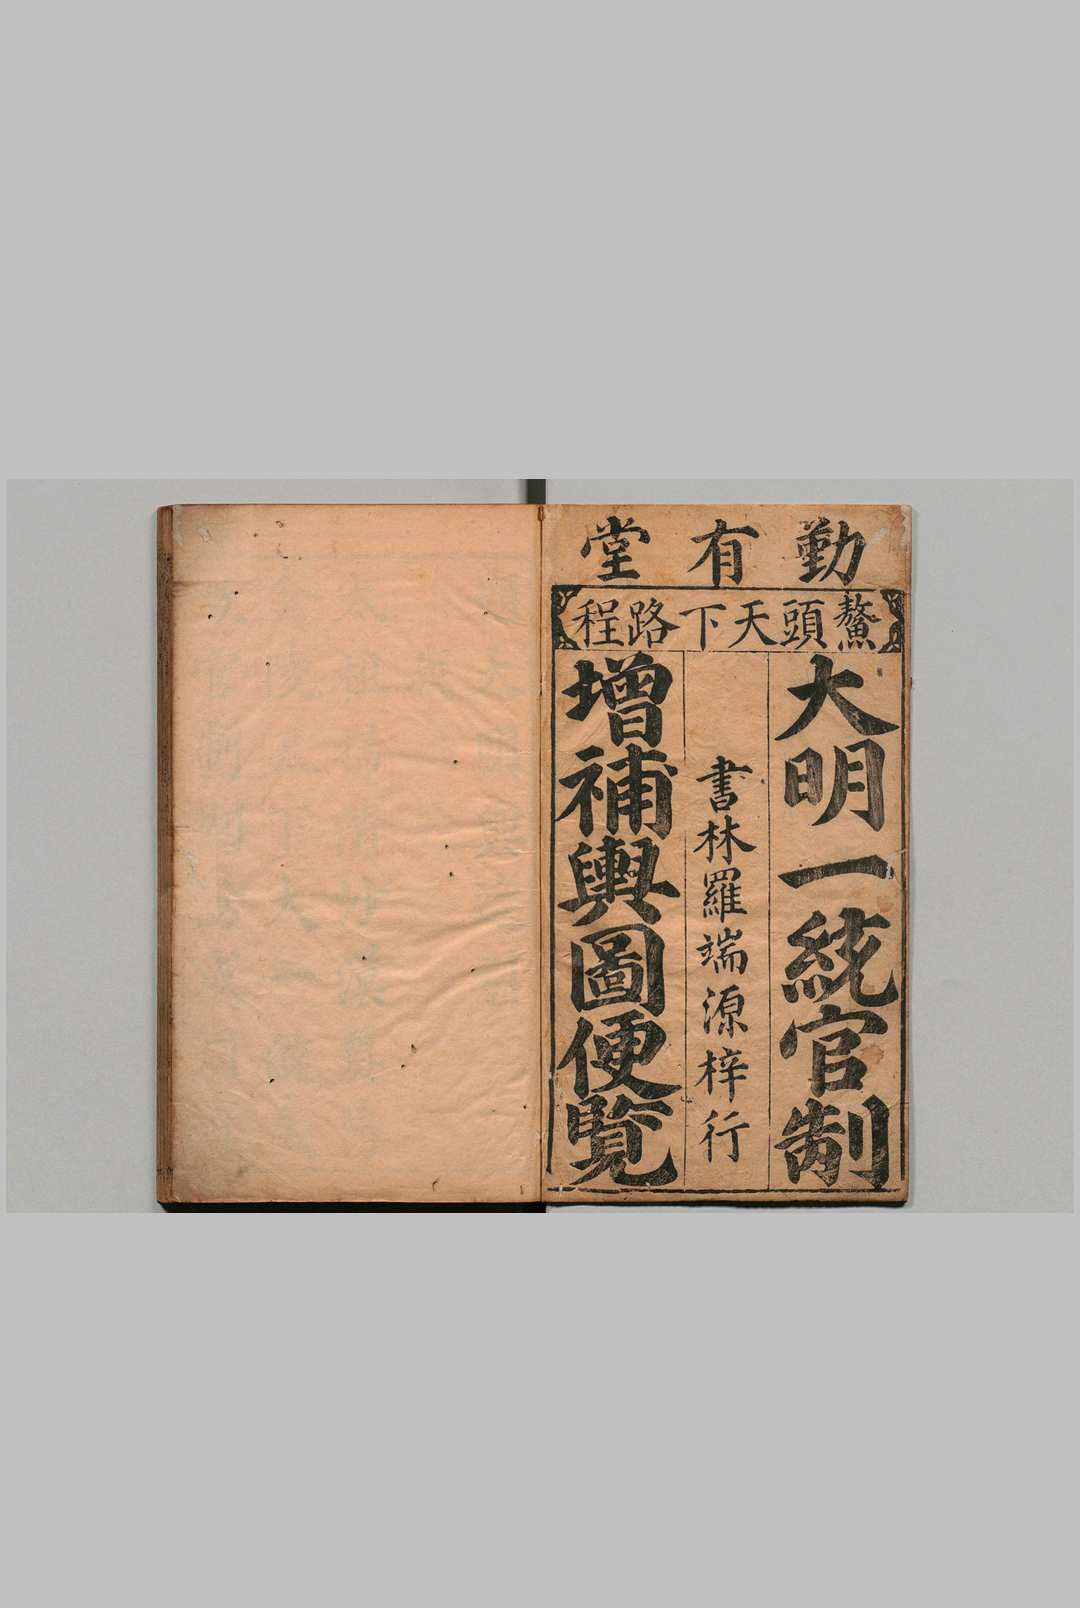 勤有堂
鰲頭天下路程
大明一統官制
書林羅端源梓行
增補輿圖便覽